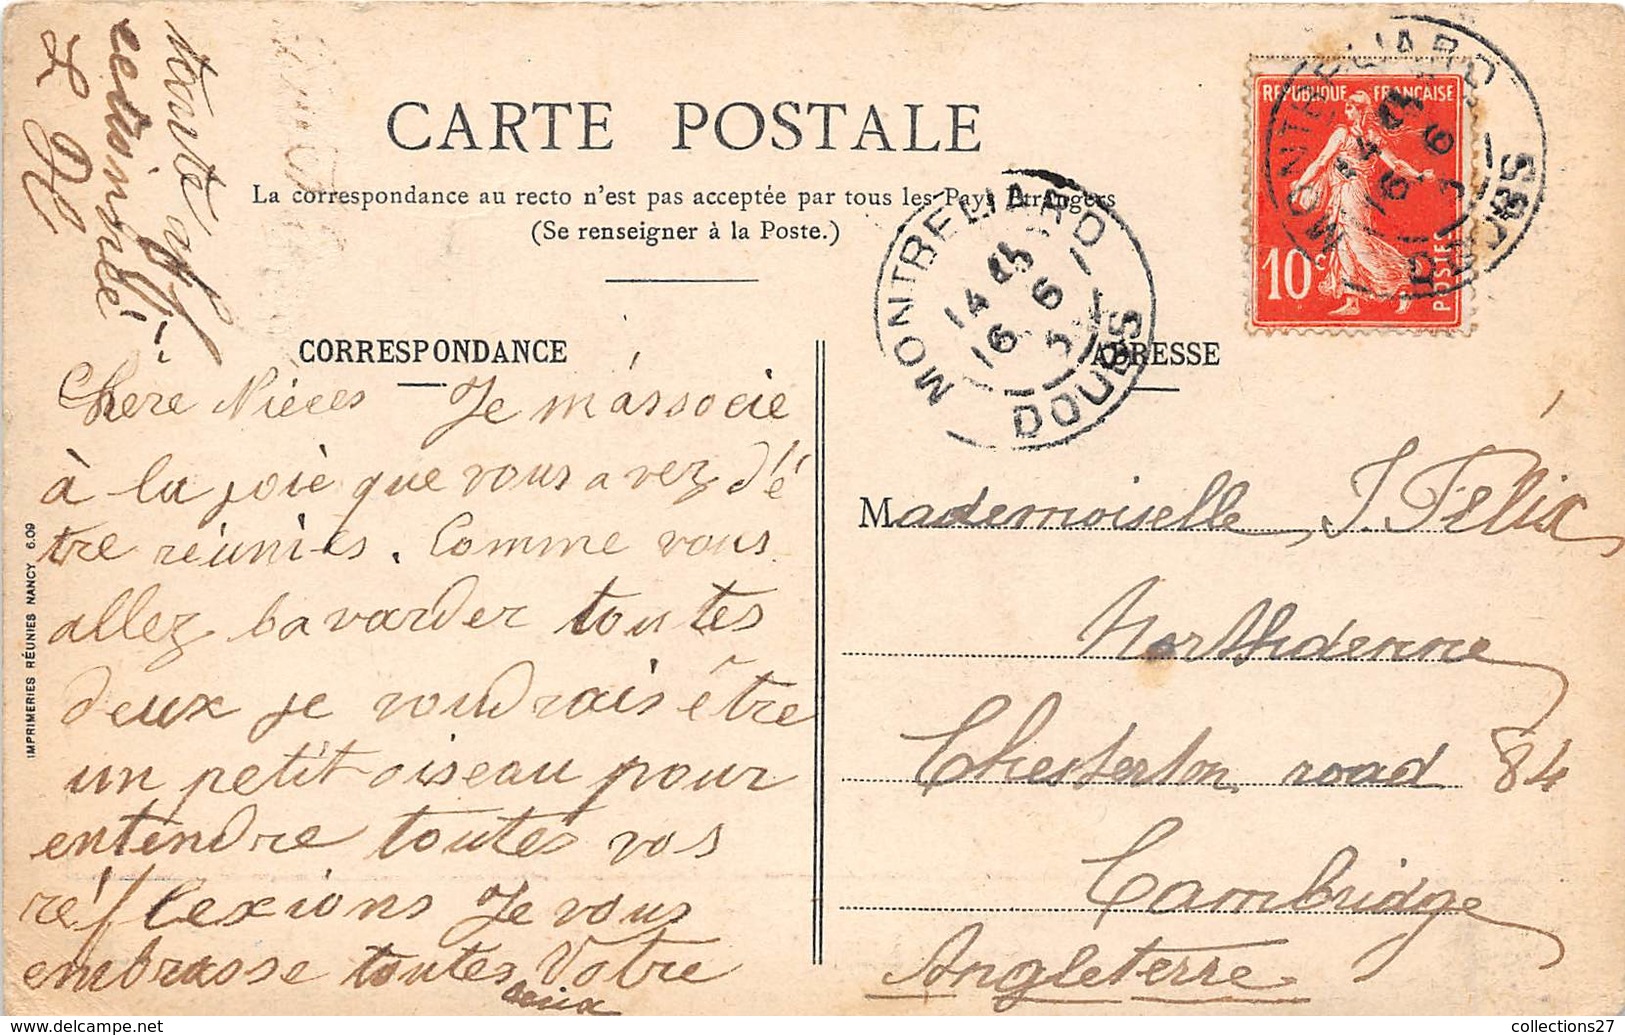 CARTE POSTALE
La correspondance au recto n'est pas acceptée par tous les Pays Étrangers
(Se renseigner à la Poste.)
CORRESPONDANCE
ADRESSE
REPUBLIQUE FRANÇAISE
10c
POSTES
MONTBELIARD
DOUBS
14
16 6
MONTBELIARD
DOUBS
14
16 6
Chère Nièces Je m'associe
à la joie que vous avez d'ê
tre réunies. Comme vous
allez bavarder toutes
deux je voudrais être
un petit oiseau pour
entendre toutes vos
réflexions Je vous
embrasse toutes deux Votre
tante aff
ectionnée
Mademoiselle J. Félix
Chesterton road 84
Cambridge
Angleterre
IMPRIMERIES RÉUNIES NANCY 6.09
collections27